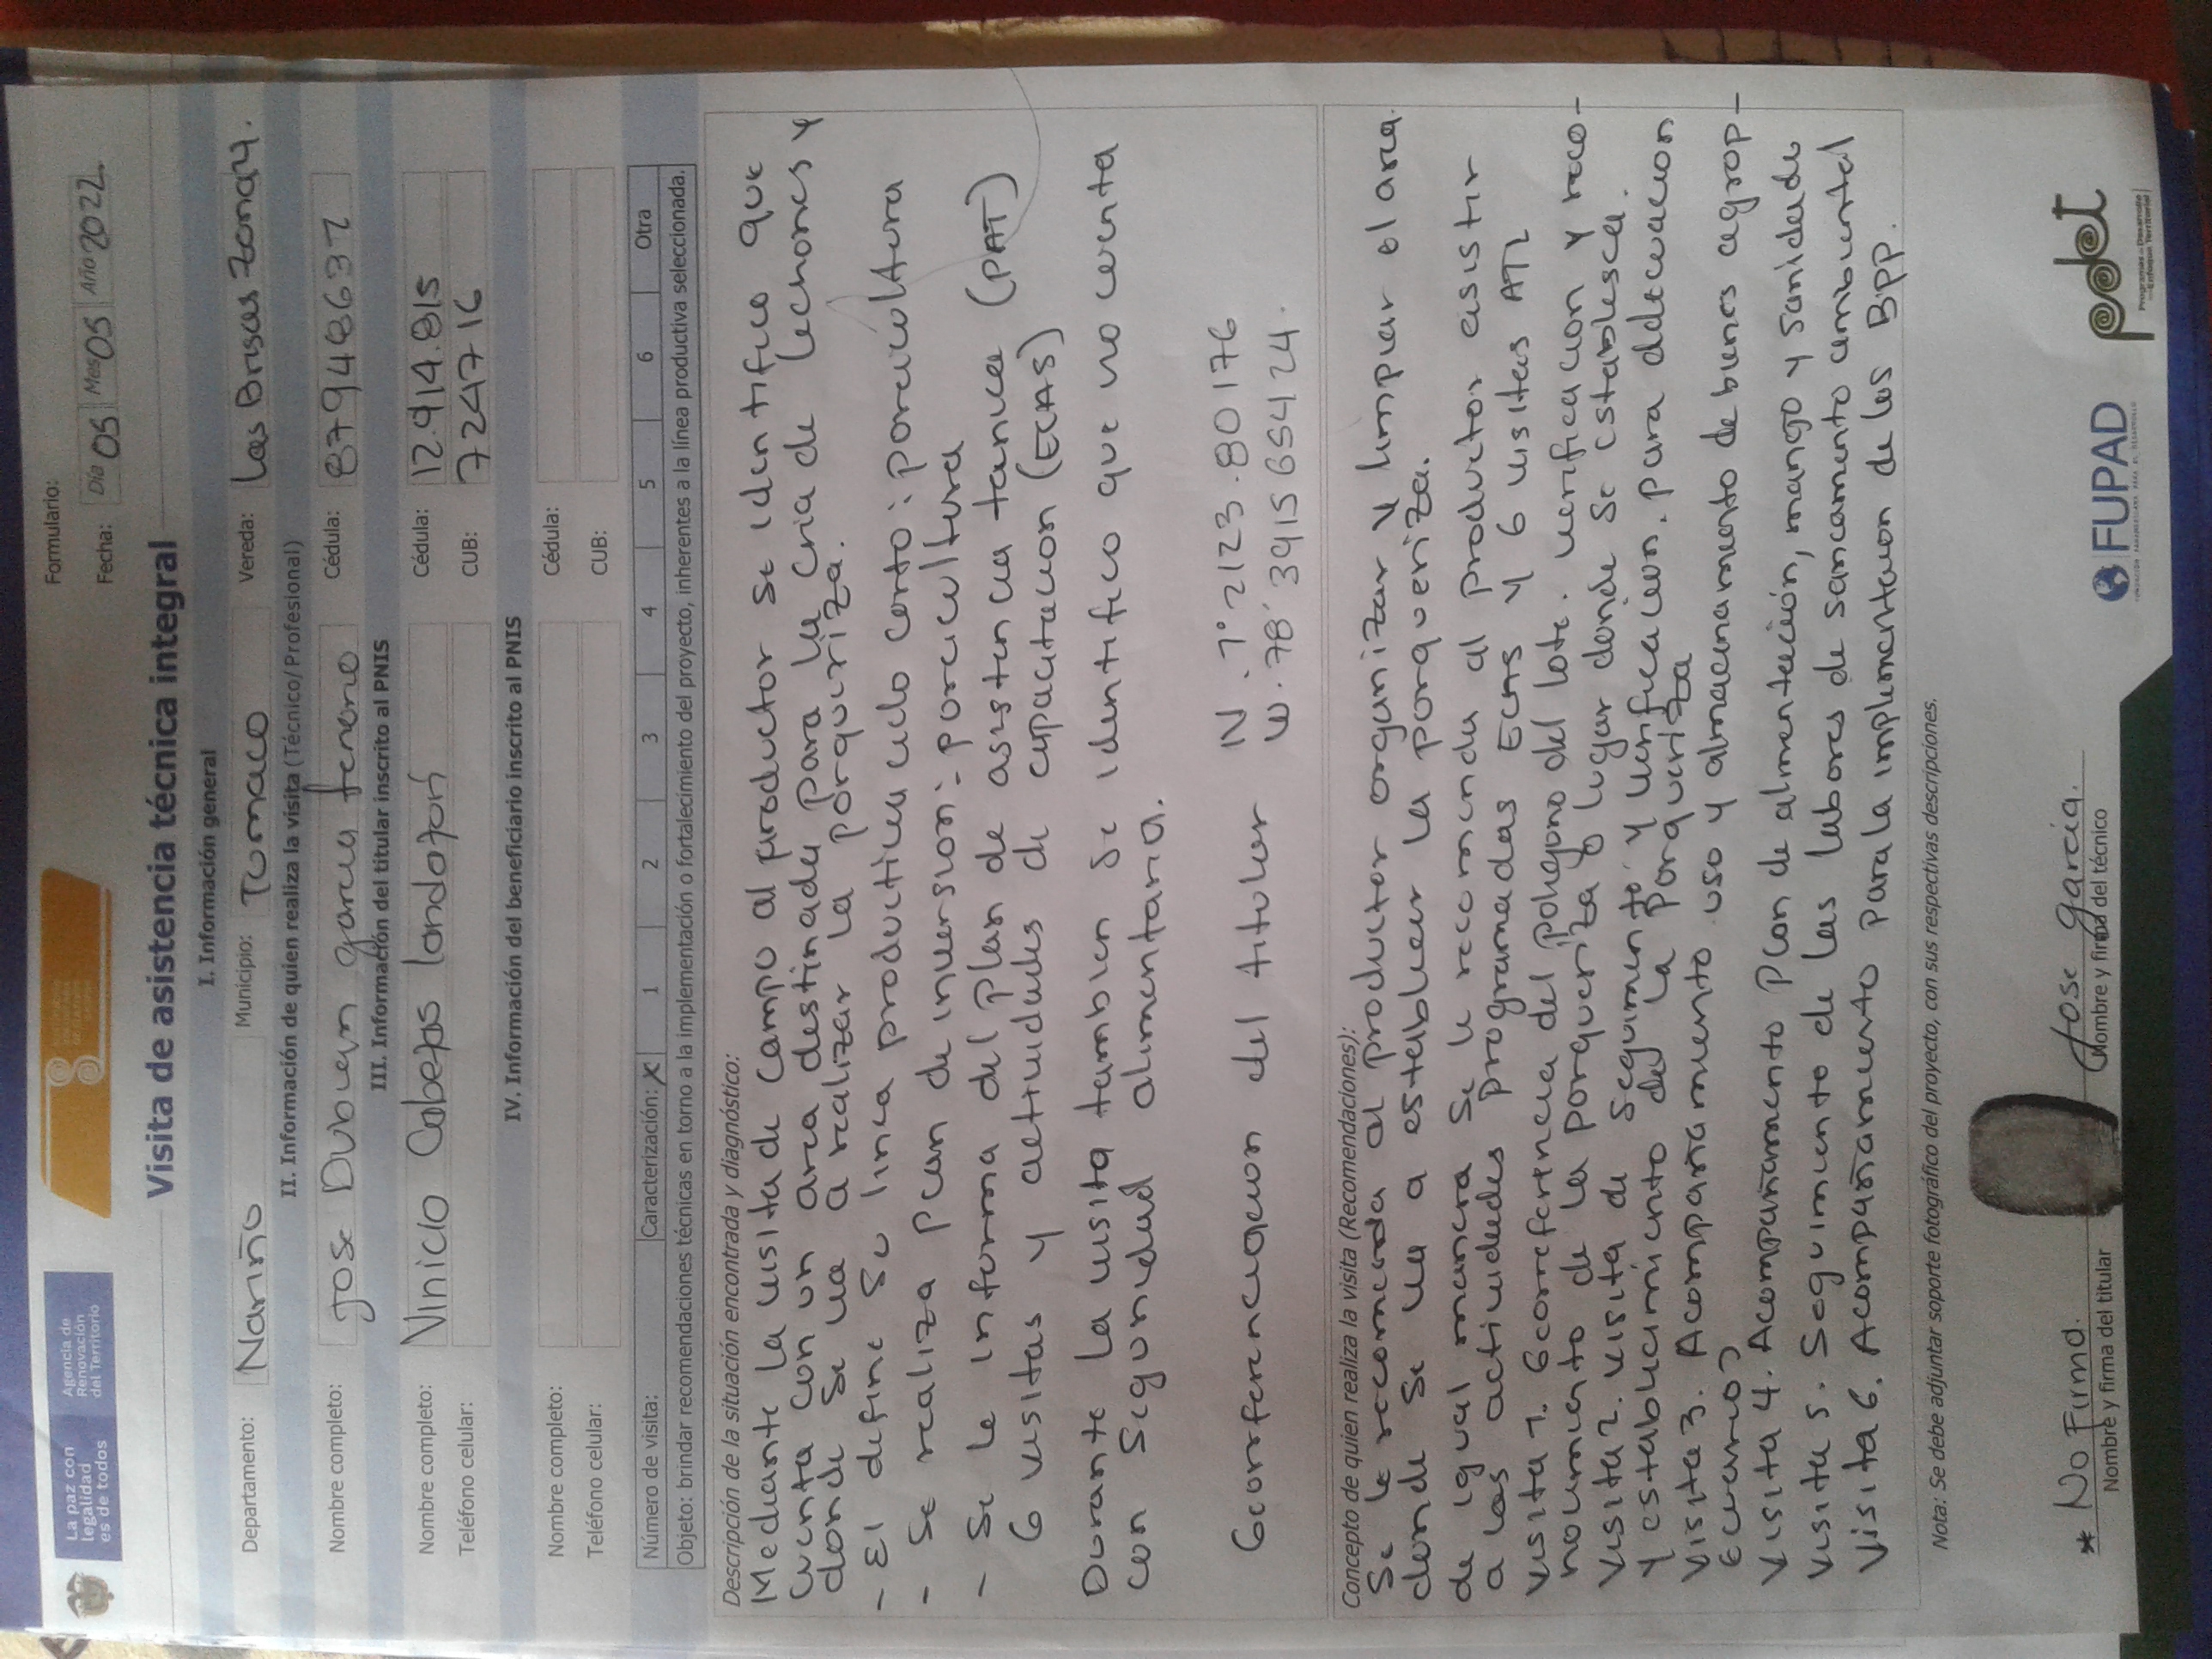 La paz con
legalidad
es de todos
Agencia de
Renovación
del Territorio
Formulario:
Fecha: Día 05 Mes 05 Año 2022
Visita de asistencia técnica integral
I. Información general
Departamento: Nariño Municipio: Tumaco Vereda: Las Brisas Zona 4.
II. Información de quien realiza la visita (Técnico/ Profesional)
Nombre completo: Jose Duban garcia tenorio Cédula: 87948637
III. Información del titular inscrito al PNIS
Nombre completo: Vinicio Cabezas londoñon Cédula: 12.914.815
Teléfono celular: CUB: 724716
IV. Información del beneficiario inscrito al PNIS
Nombre completo: Cédula:
Teléfono celular: CUB:
Número de visita: Caracterización: X 1 2 3 4 5 6 Otra
Objeto: brindar recomendaciones técnicas en torno a la implementación o fortalecimiento del proyecto, inherentes a la línea productiva seleccionada.
Descripción de la situación encontrada y diagnóstico:
Mediante la visita de campo al productor se identifico que
cuenta con un area destinada para la cria de lechones y
donde se va a realizar la porqueriza.
- El define su linea productiva ciclo corto: porcicultura
- Se realiza plan de inversion: porcicultura
- Se le informa del Plan de asistencia tecnica (PAT)
6 visitas y actividades de capacitacion (ECAS)
Durante la visita tambien se identifico que no cuenta
con seguridad alimentaria.
Georreferenciacion del titular N. 1° 2123.80176
W. 78' 3915654424.
Concepto de quien realiza la visita (Recomendaciones):
Se le recomienda al productor organizar y limpiar el area.
donde se va a establecer la porqueriza.
de igual manera se le recomienda al productor asistir
a las actividades programadas Ecas y 6 visitas ATI
visita 1. Georreferencia del poligono del lote. verificacion y reco-
nocimiento de la porqueriza y lugar donde se establesca.
visita 2. visita de seguimiento y verificacion. para adecuacion
y establecimiento de la porqueriza
visita 3. Acompañamiento uso y almacenamiento de bienes agrop-
ecuario)
visita 4. Acompañamiento Plan de alimentación, manejo y sanidad
visita 5. Seguimiento de las labores de saneamiento ambiental
visita 6. Acompañamiento para la implementacion de las BPP.
Nota: Se debe adjuntar soporte fotográfico del proyecto, con sus respectivas descripciones.
* No Firma.
Nombre y firma del titular
Jose garcia.
Nombre y firma del técnico
FUPAD
FUNDACIÓN PANAMERICANA PARA EL DESARROLLO
pdet
Programas de Desarrollo
con Enfoque Territorial